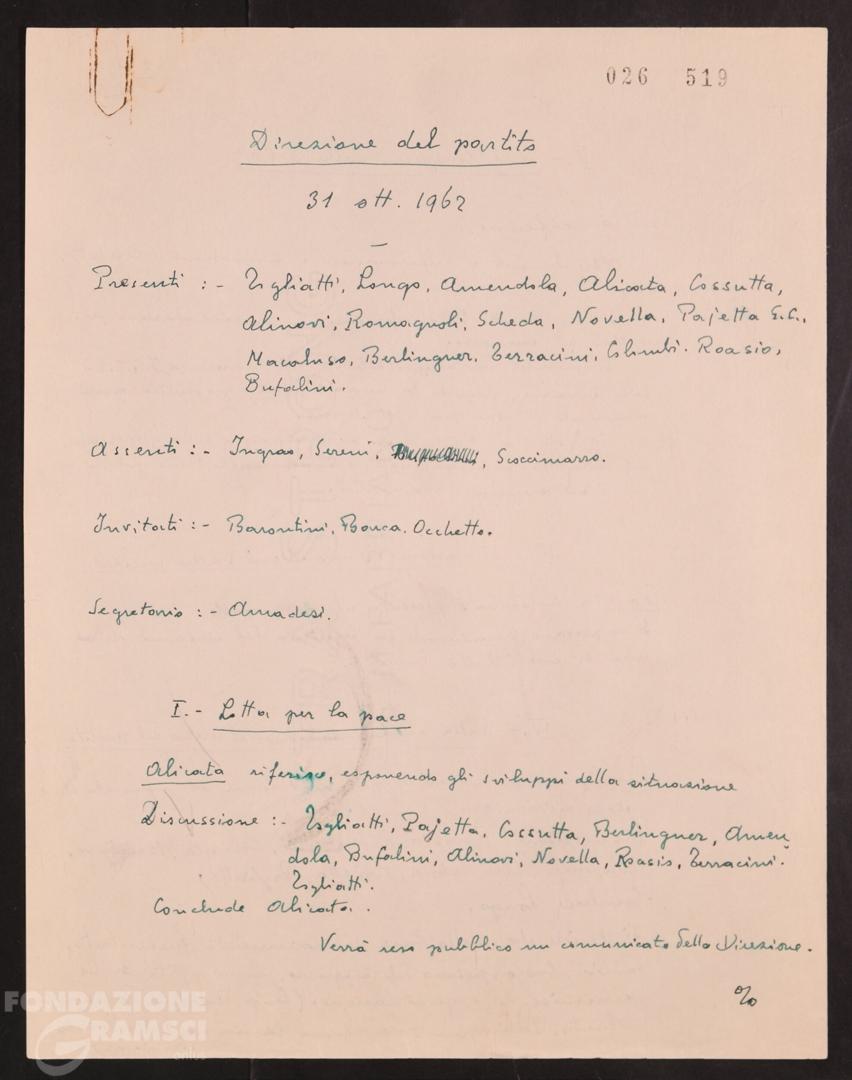 026 519
Direzione del partito
31 ott. 1962
Presenti :- Togliatti, Longo, Amendola, Alicata, Cossutta,
Alinovi, Romagnoli, Scheda, Novella, Pajetta G.C.,
Macaluso, Berlinguer, Terracini, Colombi. Roasio,
Bufalini.
Assenti :- Ingrao, Sereni, , Scoccimarro.
Invitati :- Barontini, Occhetto.
Segretario :- Amadesi.
I.- Lotta per la pace
Alicata riferisce, esponendo gli sviluppi della situazione
Discussione :- Togliatti, Pajetta, Cossutta, Berlinguer, Amen
dola, Bufalini, Alinovi, Novella, Roasio, Terracini.
Togliatti.
Conclude Alicata.
Verrà reso pubblico un comunicato della Direzione.
%
FONDAZIONE
GRAMSCI
onlus